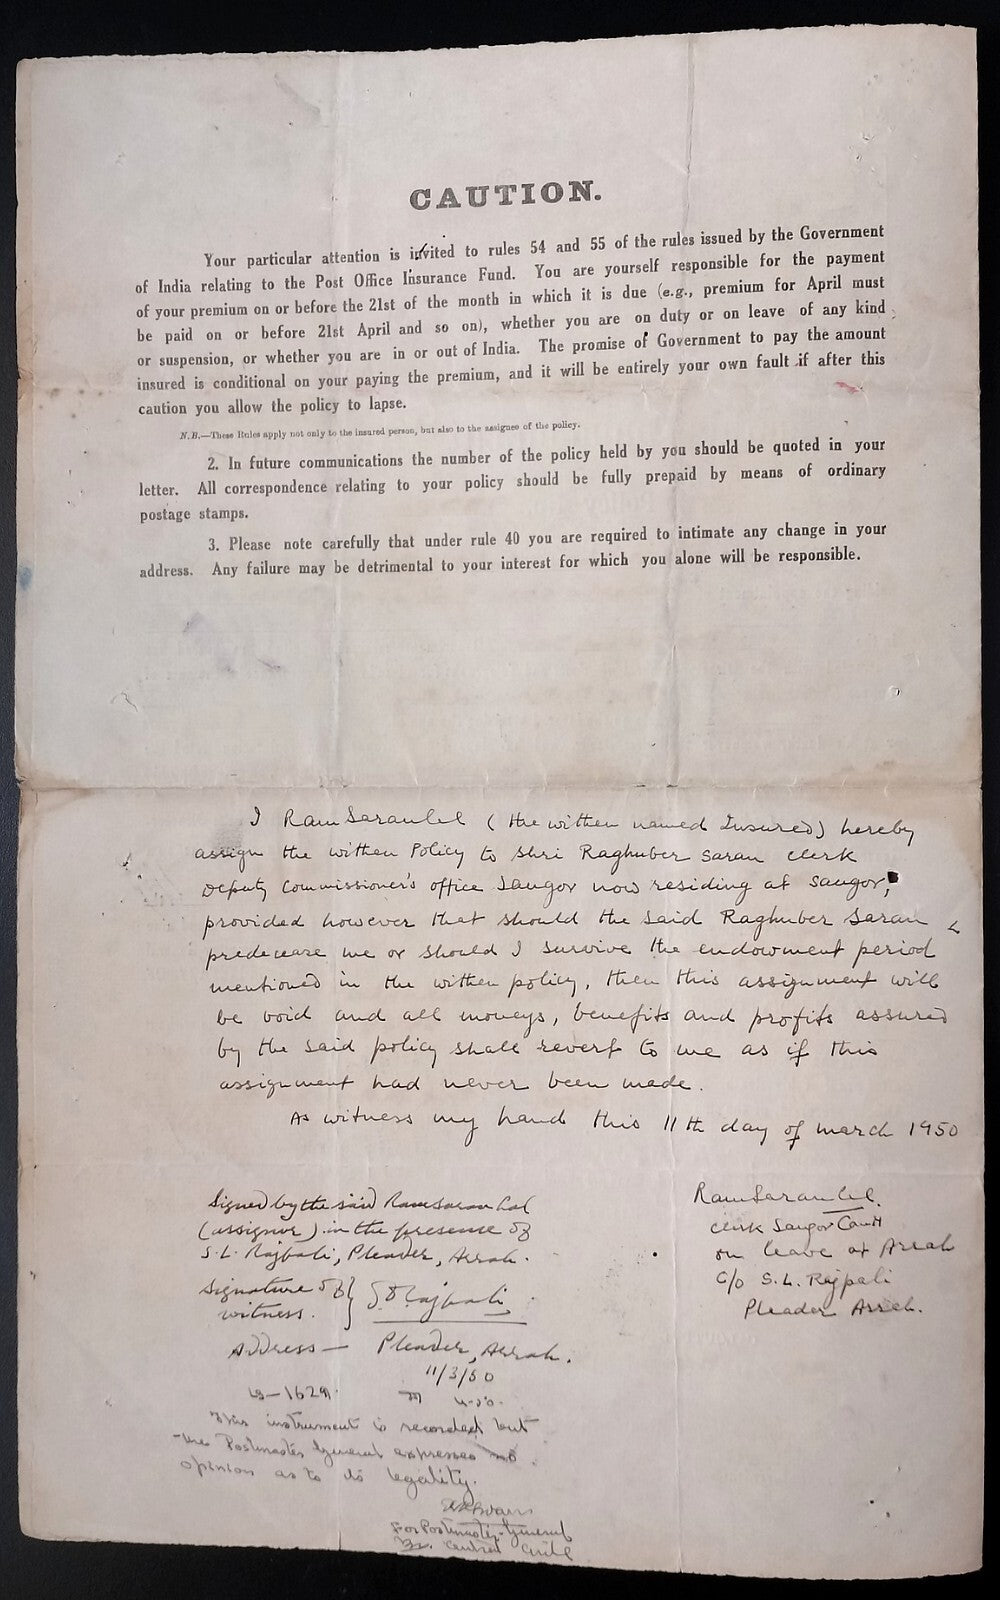 CAUTION.
Your particular attention is invited to rules 54 and 55 of the rules issued by the Government
of India relating to the Post Office Insurance Fund. You are yourself responsible for the payment
of your premium on or before the 21st of the month in which it is due (e.g., premium for April must
be paid on or before 21st April and so on), whether you are on duty or on leave of any kind
or suspension, or whether you are in or out of India. The promise of Government to pay the amount
insured is conditional on your paying the premium, and it will be entirely your own fault if after this
caution you allow the policy to lapse.
N.B.—These Rules apply not only to the insured person, but also to the assignee of the policy.
2. In future communications the number of the policy held by you should be quoted in your
letter. All correspondence relating to your policy should be fully prepaid by means of ordinary
postage stamps.
3. Please note carefully that under rule 40 you are required to intimate any change in your
address. Any failure may be detrimental to your interest for which you alone will be responsible.
I Ram Saran Lal (the within named Insured) hereby
assign the within Policy to Shri Raghuber Saran clerk
Deputy Commissioner's office Saugor now residing at Saugor,
provided however that should the said Raghuber Saran
predecease me or should I survive the endowment period
mentioned in the within policy, then this assignment will
be void and all moneys, benefits and profits assured
by the said policy shall revert to me as if this
assignment had never been made.
As witness my hand this 11th day of march 1950
Signed by the said Ram Saran Lal
(assignor) in the presence of
S. L. Rajpali, Pleader, Arrah.
Signature of
witness. } S L Rajpali
Address — Pleader, Arrah.
11/3/50
Ram Saran Lal.
clerk Saugor Cantt
on leave at Arrah
C/o S. L. Rajpali
Pleader Arrah.
This instrument is recorded but
the Postmaster General expresses no
opinion as to its legality.
For Postmaster-General
Central Circle